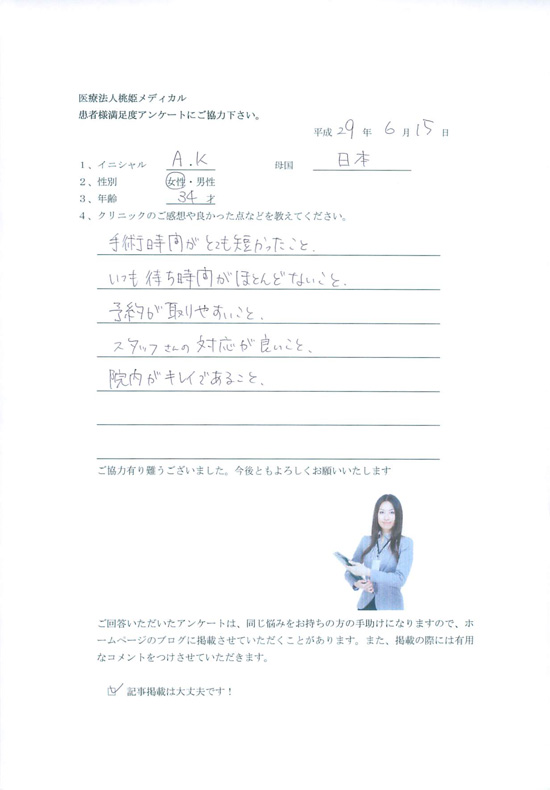 医療法人桃姫メディカル
患者様満足度アンケートにご協力下さい。
平成 29 年 6 月 15 日
1、イニシャル A.K 母国 日本
2、性別 女性・男性
3、年齢 34 才
4、クリニックのご感想や良かった点などを教えてください。
手術時間がとても短かったこと、
いつも待ち時間がほとんどないこと、
予約が取りやすいこと、
スタッフさんの対応が良いこと、
院内がキレイであること、
ご協力有り難うございました。今後ともよろしくお願いいたします
ご回答いただいたアンケートは、同じ悩みをお持ちの方の手助けになりますので、ホ
ームページのブログに掲載させていただくことがあります。また、掲載の際には有用
なコメントをつけさせていただきます。
☑ 記事掲載は大丈夫です！